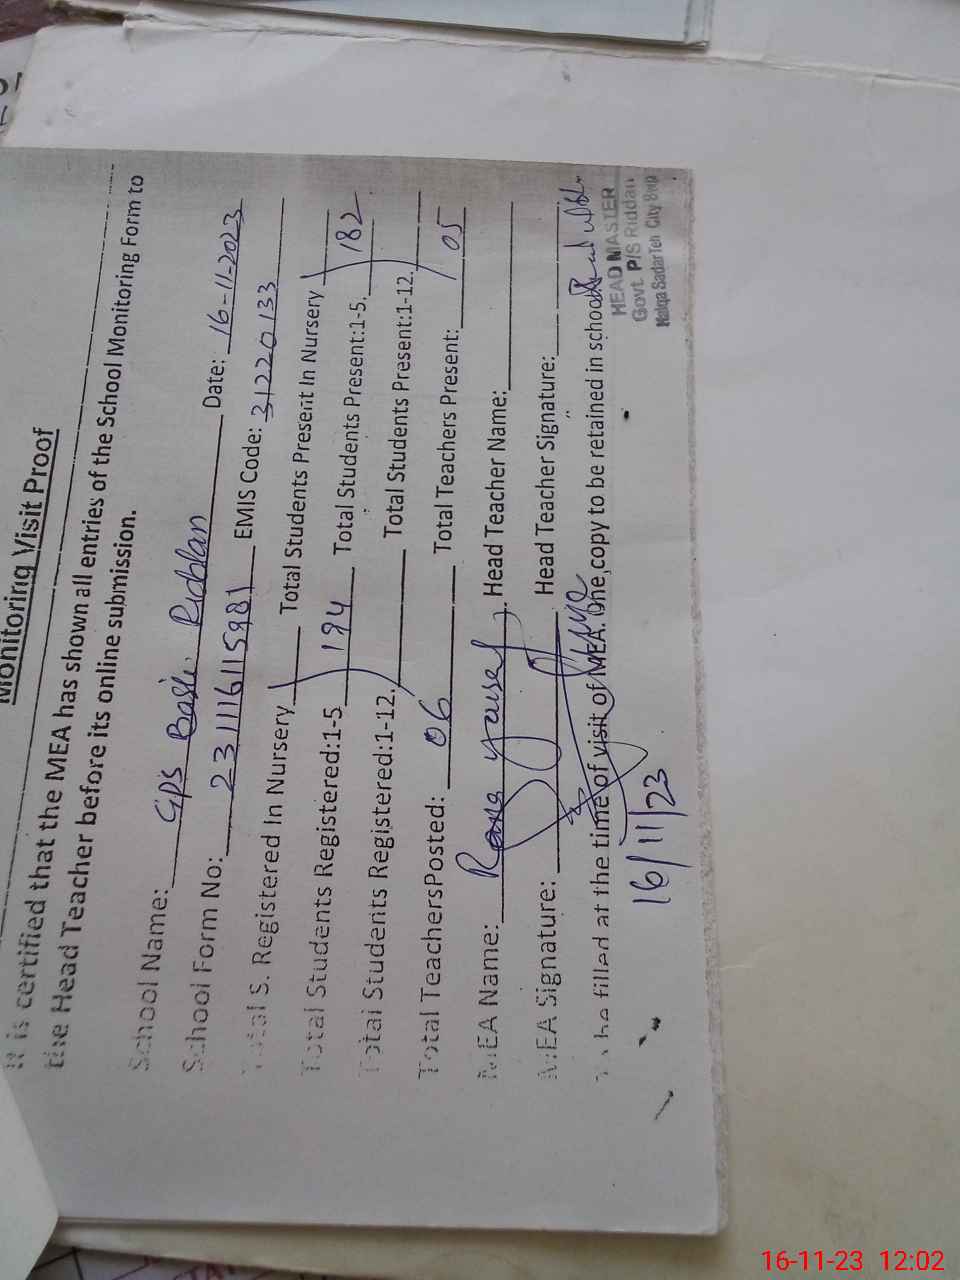 Monitoring Visit Proof
It is certified that the MEA has shown all entries of the School Monitoring Form to
the Head Teacher before its online submission.
School Name: GPS Basti Riddan Date: 16-11-2023
School Form No: 231116115981 EMIS Code: 31220133
Total S. Registered In Nursery Total Students Present In Nursery
Total Students Registered:1-5 194 Total Students Present:1-5. 182
Total Students Registered:1-12. Total Students Present:1-12.
Total TeachersPosted: 06 Total Teachers Present: 05
MEA Name: Rana yousaf Head Teacher Name:
MEA Signature: Head Teacher Signature:
To be filled at the time of visit of MEA. One copy to be retained in school
16/11/23
HEAD MASTER
Govt. P/S Riddan
Halqa Sadar Teh City Bwp
16-11-23 12:02